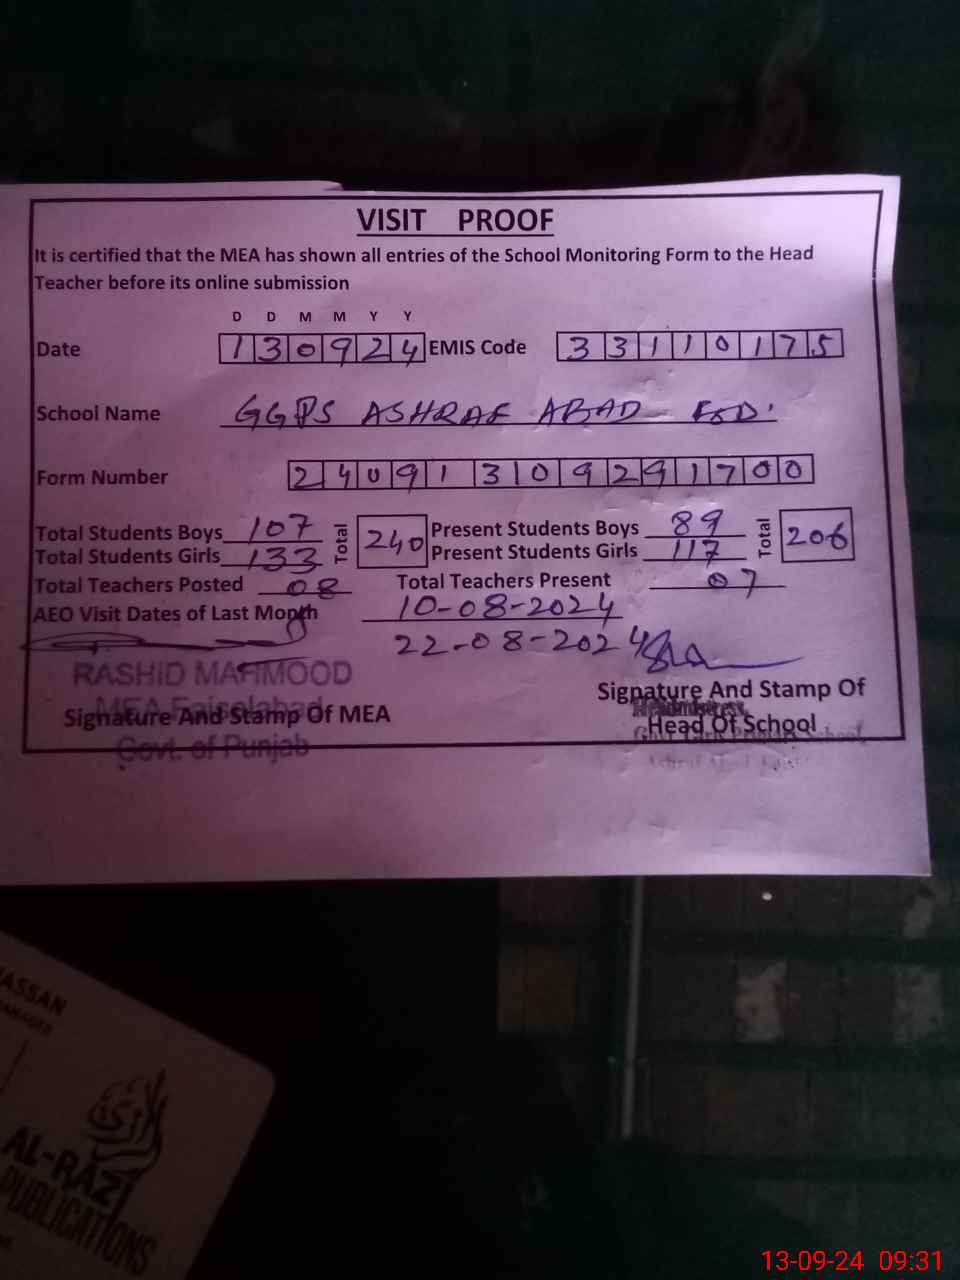 VISIT PROOF
It is certified that the MEA has shown all entries of the School Monitoring Form to the Head
Teacher before its online submission
D D M M Y Y
Date 130924 EMIS Code 33110175
School Name GGPS ASHRAF ABAD FSD.
Form Number 240913109291700
Total Students Boys 107 Total 240 Present Students Boys 89 Total 206
Total Students Girls 133 Present Students Girls 117
Total Teachers Posted 08 Total Teachers Present 07
AEO Visit Dates of Last Month 10-08-2024
22-08-2024
RASHID MAHMOOD
MEA Faisalabad
Govt. of Punjab
Signature And Stamp Of MEA
Signature And Stamp Of
Head Of School
ASSAN
MANAGER
AL-RAZI
PUBLICATIONS
13-09-24 09:31